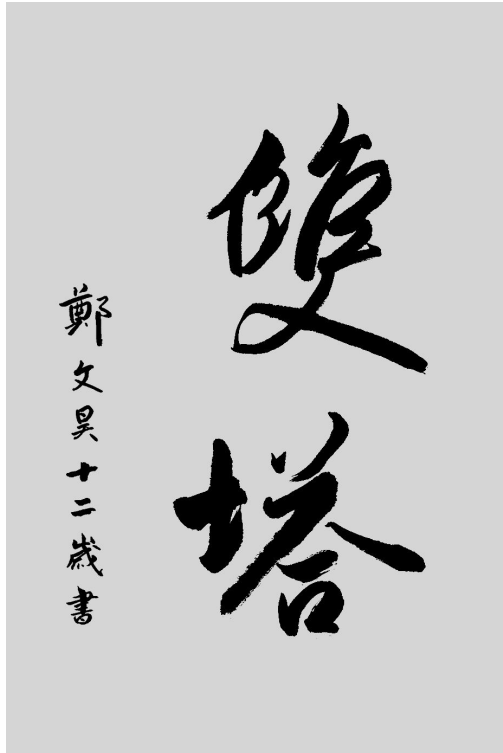 雙塔
鄭文昊十二歲書